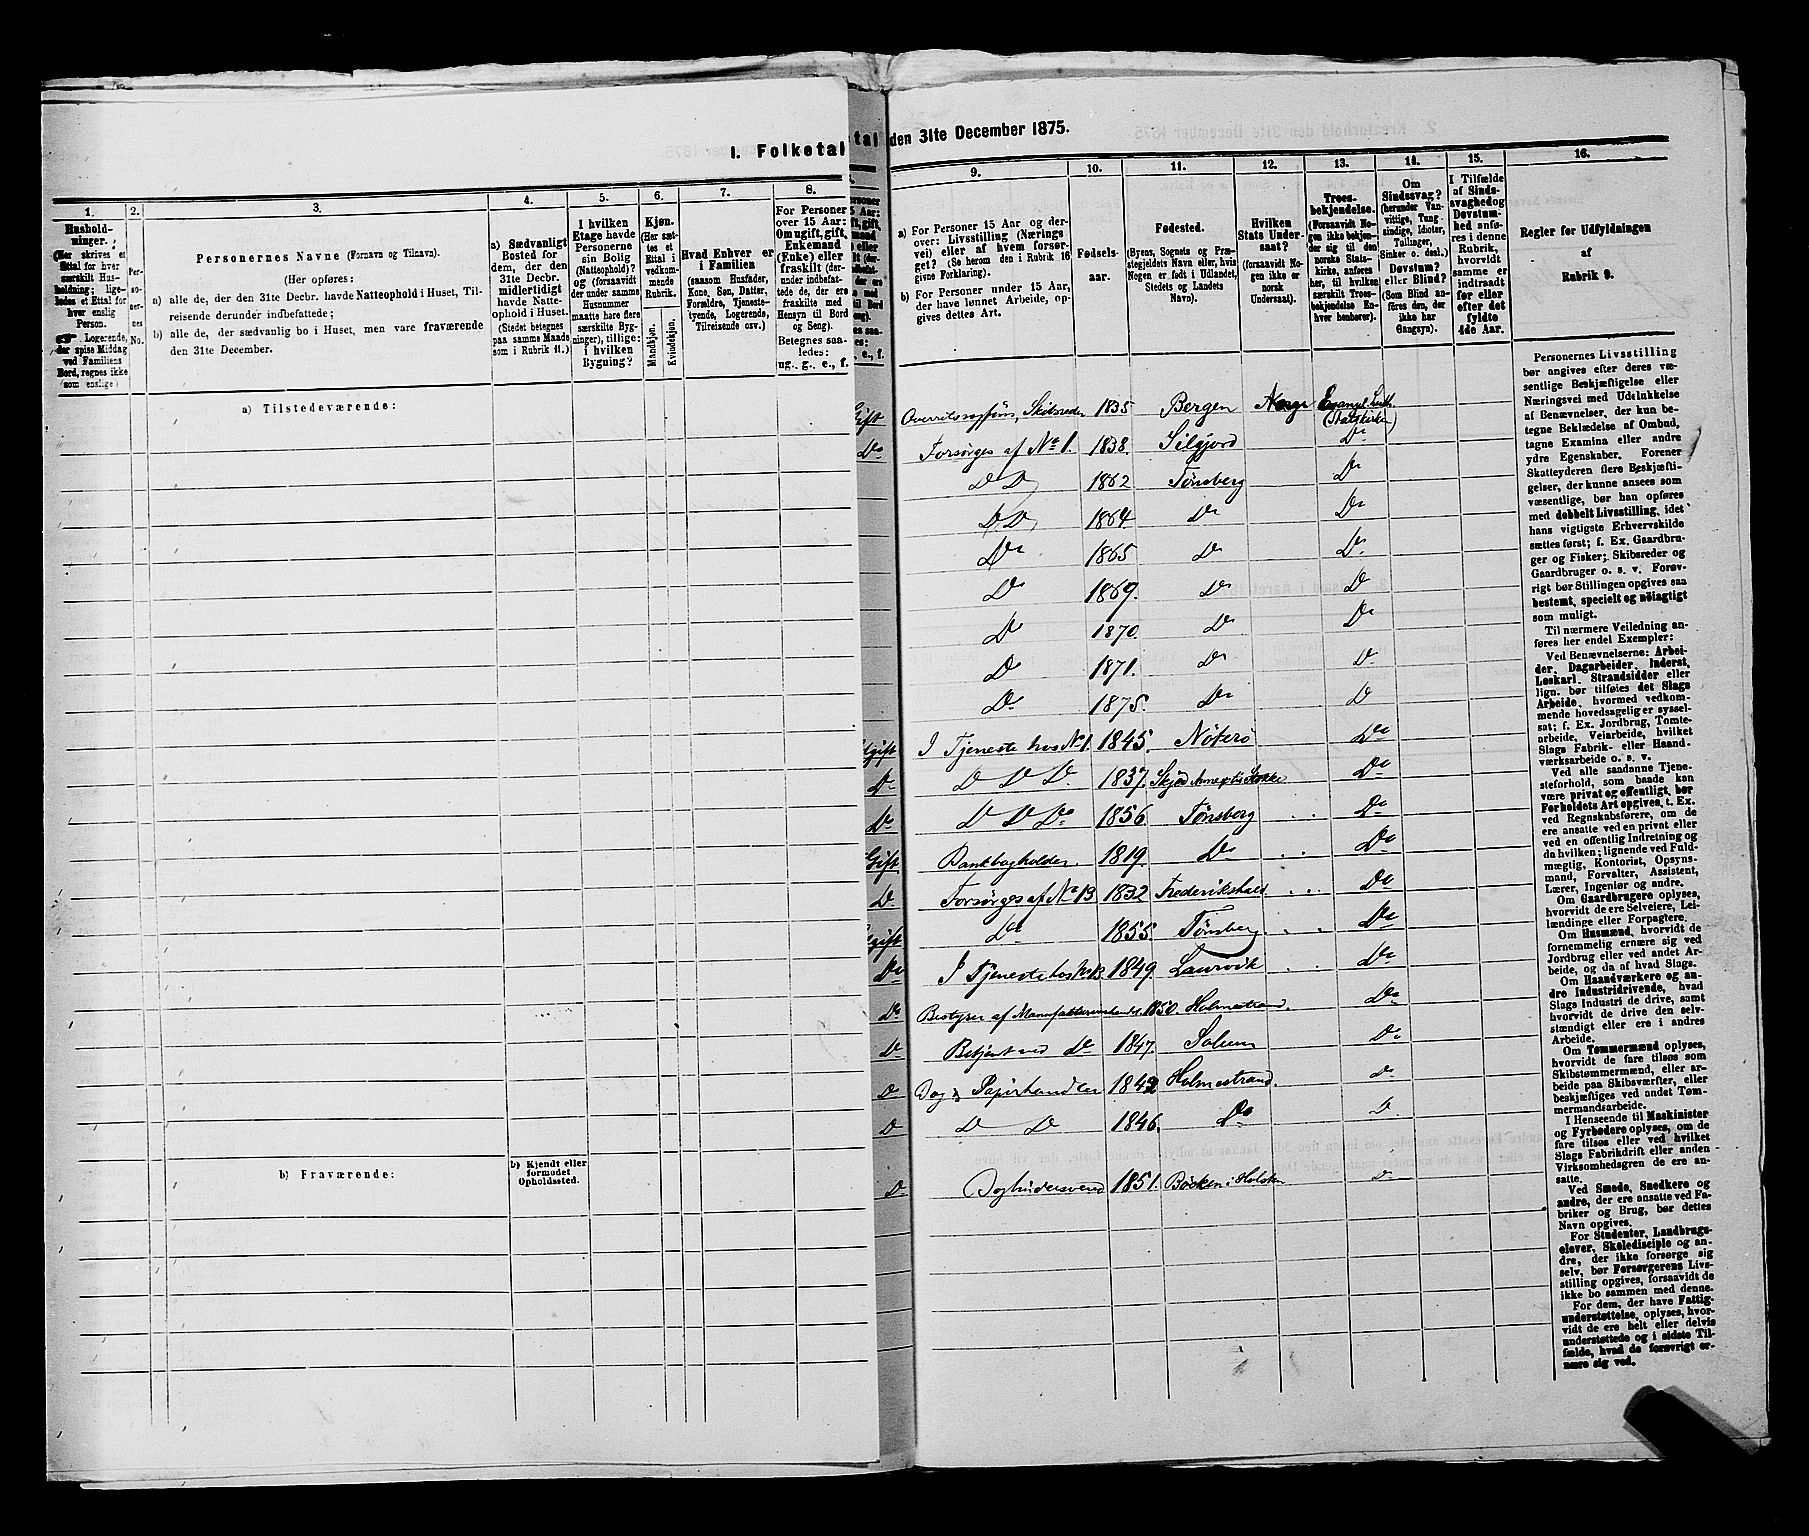 I. Folketal
tal
den 31te December 1875.
1.
2.
3.
4.
5.
6.
7.
8.
Husholdninger.
(Her skrives et
Ettal for hver
særskilt Husholdning;
ligeledes et Ettal for
hver enslig
Person.
Logerende,
der spise Middag
ved Familiens
Bord, regnes ikke
som enslige)
Personernes
No.
Personernes Navne (Fornavn og Tilnavn).
(Her opføres:
a) alle de, der den 31te Decbr. havde Natteophold i Huset, Tilreisende derunder indbefattede;
b) alle de, der sædvanlig bo i Huset, men vare fraværende
den 31te December.
a) Sædvanligt
Bosted for
dem, der den
31te Decbr.
midlertidigt
havde Natteophold i Huset.
(Stedet betegnes
paa samme Maade
som i Rubrik 11.)
I hvilken
Etage havde
Personerne
sin Bolig
(Natteophold)?
og (forsaavidt
der under samme
Husnummer
maatte høre flere
særskilte Bygninger), tillige:
i hvilken
Bygning?
Kjøn.
(Her sættes et
Ettal i
vedkommende
Rubrik.
Mandkjøn.
Kvindekjøn.
Hvad Enhver er
i Familien
(saasom Husfader,
Kone, Søn, Datter,
Forældre, Tjenestetyende, Logerende,
Tilreisende osv.)
For Personer
over 15 Aar:
Om ugift, gift,
Enkemand
(Enke) eller
fraskilt (derunder indbefattede de, der ere
fraskilte med
Hensyn til Bord
og Seng).
Betegnes saaledes:
ug., g., e., f.
a) Tilstedeværende:
b) Fraværende:
b) Kjendt eller
formodet
Opholdssted.
9.
10.
11.
12.
13.
14.
15.
16.
a) For Personer 15 Aar og derover: Livsstilling (Næringsvei) eller af hvem forsørget? (Se herom den i Rubrik 16
givne Forklaring).
b) For Personer under 15 Aar,
der have lønnet Arbeide, opgives dettes Art.
Fødselsaar.
Fødested.
(Byens, Sognets og Præstegjeldets Navn eller, hvis
Nogen er født i Udlandet,
Stedets og Landets
Navn).
Hvilken
Stats Undersaat?
(forsaavidt Nogen ikke er
norsk
Undersaat).
Troesbekjendelse.
(Forsaavidt Nogen ikke bekjender sig til den
norske Statskirke, anføres
her, til hvilken
særskilt Troesbekjendelse Enhver henhører).
Om
Sindssvag?
(herunder Vanvittige, Tungsindige, Idioter,
Tullinger,
Sinker o. desl.).
Døvstum?
eller Blind?
(Som Blind anføres den, der
ikke har
Gangsyn).
I Tilfælde
af Sindssvaghed og
Døvstumhed anføres i denne
Rubrik,
hvorvidt
samme er
indtraadt
før eller
efter det
fyldte
4de Aar.
Regler for Udfyldningen
af
Rubrik 9.
Gift Skibsreder 1835 Bergen Norge Evangel. Luth. (Statskirken)
Do Forsørges af No 1. 1838. Silgjord Do
D D 1862 Tønsberg Do
D D 1864 Do Do
Do 1865 Do Do
Do 1869. Do D
Do 1870. Do Do
D 1871. Do D
Do 1875. Do D
I Tjeneste hos No 1. 1845. Nøterø Do
Do D D D 1837. Skjee Annex til Stokke Do
Do D D Do 1856. Tønsberg Do
Gift Bankbogholder. 1819 Do Do
D Forsørges af No 13 1832 Frederikshald Do
Do 1855. Tønsberg Do
Do I Tjeneste hos No 13 1849. Laurvik Do
Do Bestyrer af 1850. Holmestrand. Do
Do Betjent ved Do 1847. Solum Do
Do Bog og Papirhandler 1842 Holmestrand. Do
D D D 1846. Do D
Do Bogbindersvend 1851. i Holsten Do
Personernes Livsstilling
bør angives efter deres væsentlige Beskjæftigelse eller
Næringsvei med Udelukkelse
af Benævnelser, der kun betegne Beklædelse af Ombud,
tagne Examina eller andre
ydre Egenskaber. Forener
Skatteyderen flere Beskjæftigelser, der kunne ansees som
væsentlige, bør han opføres
med dobbelt Livsstilling, idet
hans vigtigste Erhvervskilde
sættes først; f. Ex. Gaardbruger og Fisker; Skibsreder og
Gaardbruger o. s. v. Forøvrigt bør Stillingen opgives saa
bestemt, specielt og nøiagtigt
som muligt.
Til nærmere Veiledning anføres her endel Exempler:
Ved Benævnelserne: Arbeider, Dagarbeider, Inderst,
Løskarl, Strandsidder eller
lign. bør tilføies det Slags
Arbeide, hvormed vedkommende hovedsagelig er sysselsat; f. Ex. Jordbrug, Tomtearbeide, Veiarbeide, hvilket
Slags Fabrik- eller Haandværksarbeide o. s. v.
Ved alle saadanne Tjenesteforhold, som baade kan
være privat og offentligt, bør
Forholdets Art opgives, t. Ex.
ved Regnskabsførere, om de
ere ansatte ved en privat eller
ved en offentlig Indretning og
da hvilken; lignende ved Fuldmægtig, Kontorist, Opsynsmand, Forvalter, Assistent,
Lærer, Ingeniør og andre.
Om Gaardbrugere oplyses,
hvorvidt de ere Selveiere, Leilændinge eller Forpagtere.
Om Husmænd, hvorvidt de
fornemmelig ernære sig ved
Jordbrug eller ved andet Arbeide, og da af hvad Slags.
Om Haandværkere og andre Industridrivende, hvad
Slags Industri de drive, samt
hvorvidt de drive den selvstændigt eller ere i andres
Arbeide.
Om Tømmermænd oplyses,
hvorvidt de fare tilsøs som
Skibstømmermænd, eller arbeide paa Skibsværfter, eller
beskjæftiges ved andet Tømmermandsarbeide.
I Henseende til Maskinister
og Fyrbødere oplyses, om de
fare tilsøs eller ved hvilket
Slags Fabrikdrift eller anden
Virksomhedsgren de ere ansatte.
Ved Smede, Snedkere og
andre, der ere ansatte ved Fabriker og Brug, bør dettes
Navn opgives.
For Studenter, Landbrugselever, Skoledisciple og andre, der ikke forsørge sig
selv, bør Forsørgerens Livsstilling opgives, forsaavidt de
ikke bo sammen med denne.
For dem, der have Fattigunderstøttelse, oplyses, hvorvidt de ere helt eller delvis
understøttede og i sidste Tilfælde, hvad de forøvrigt ernære sig ved.